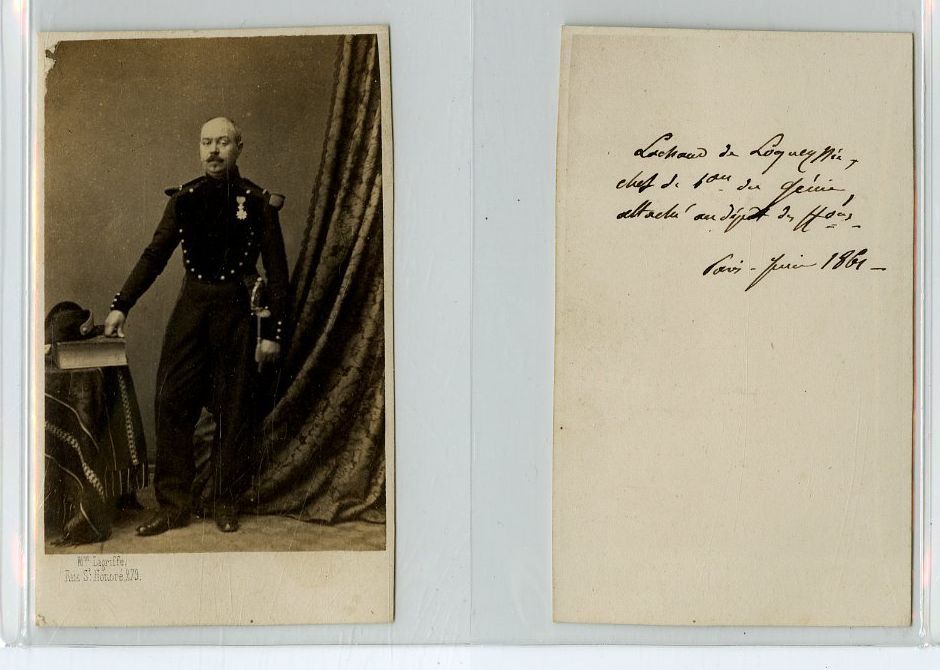 Mme Lagriffe,
Rue St. Honoré, 279.
Lachaud de Loqueyssie,
chef de bon du Génie
attaché au dépôt des ffons.
Paris - Juin 1861 -